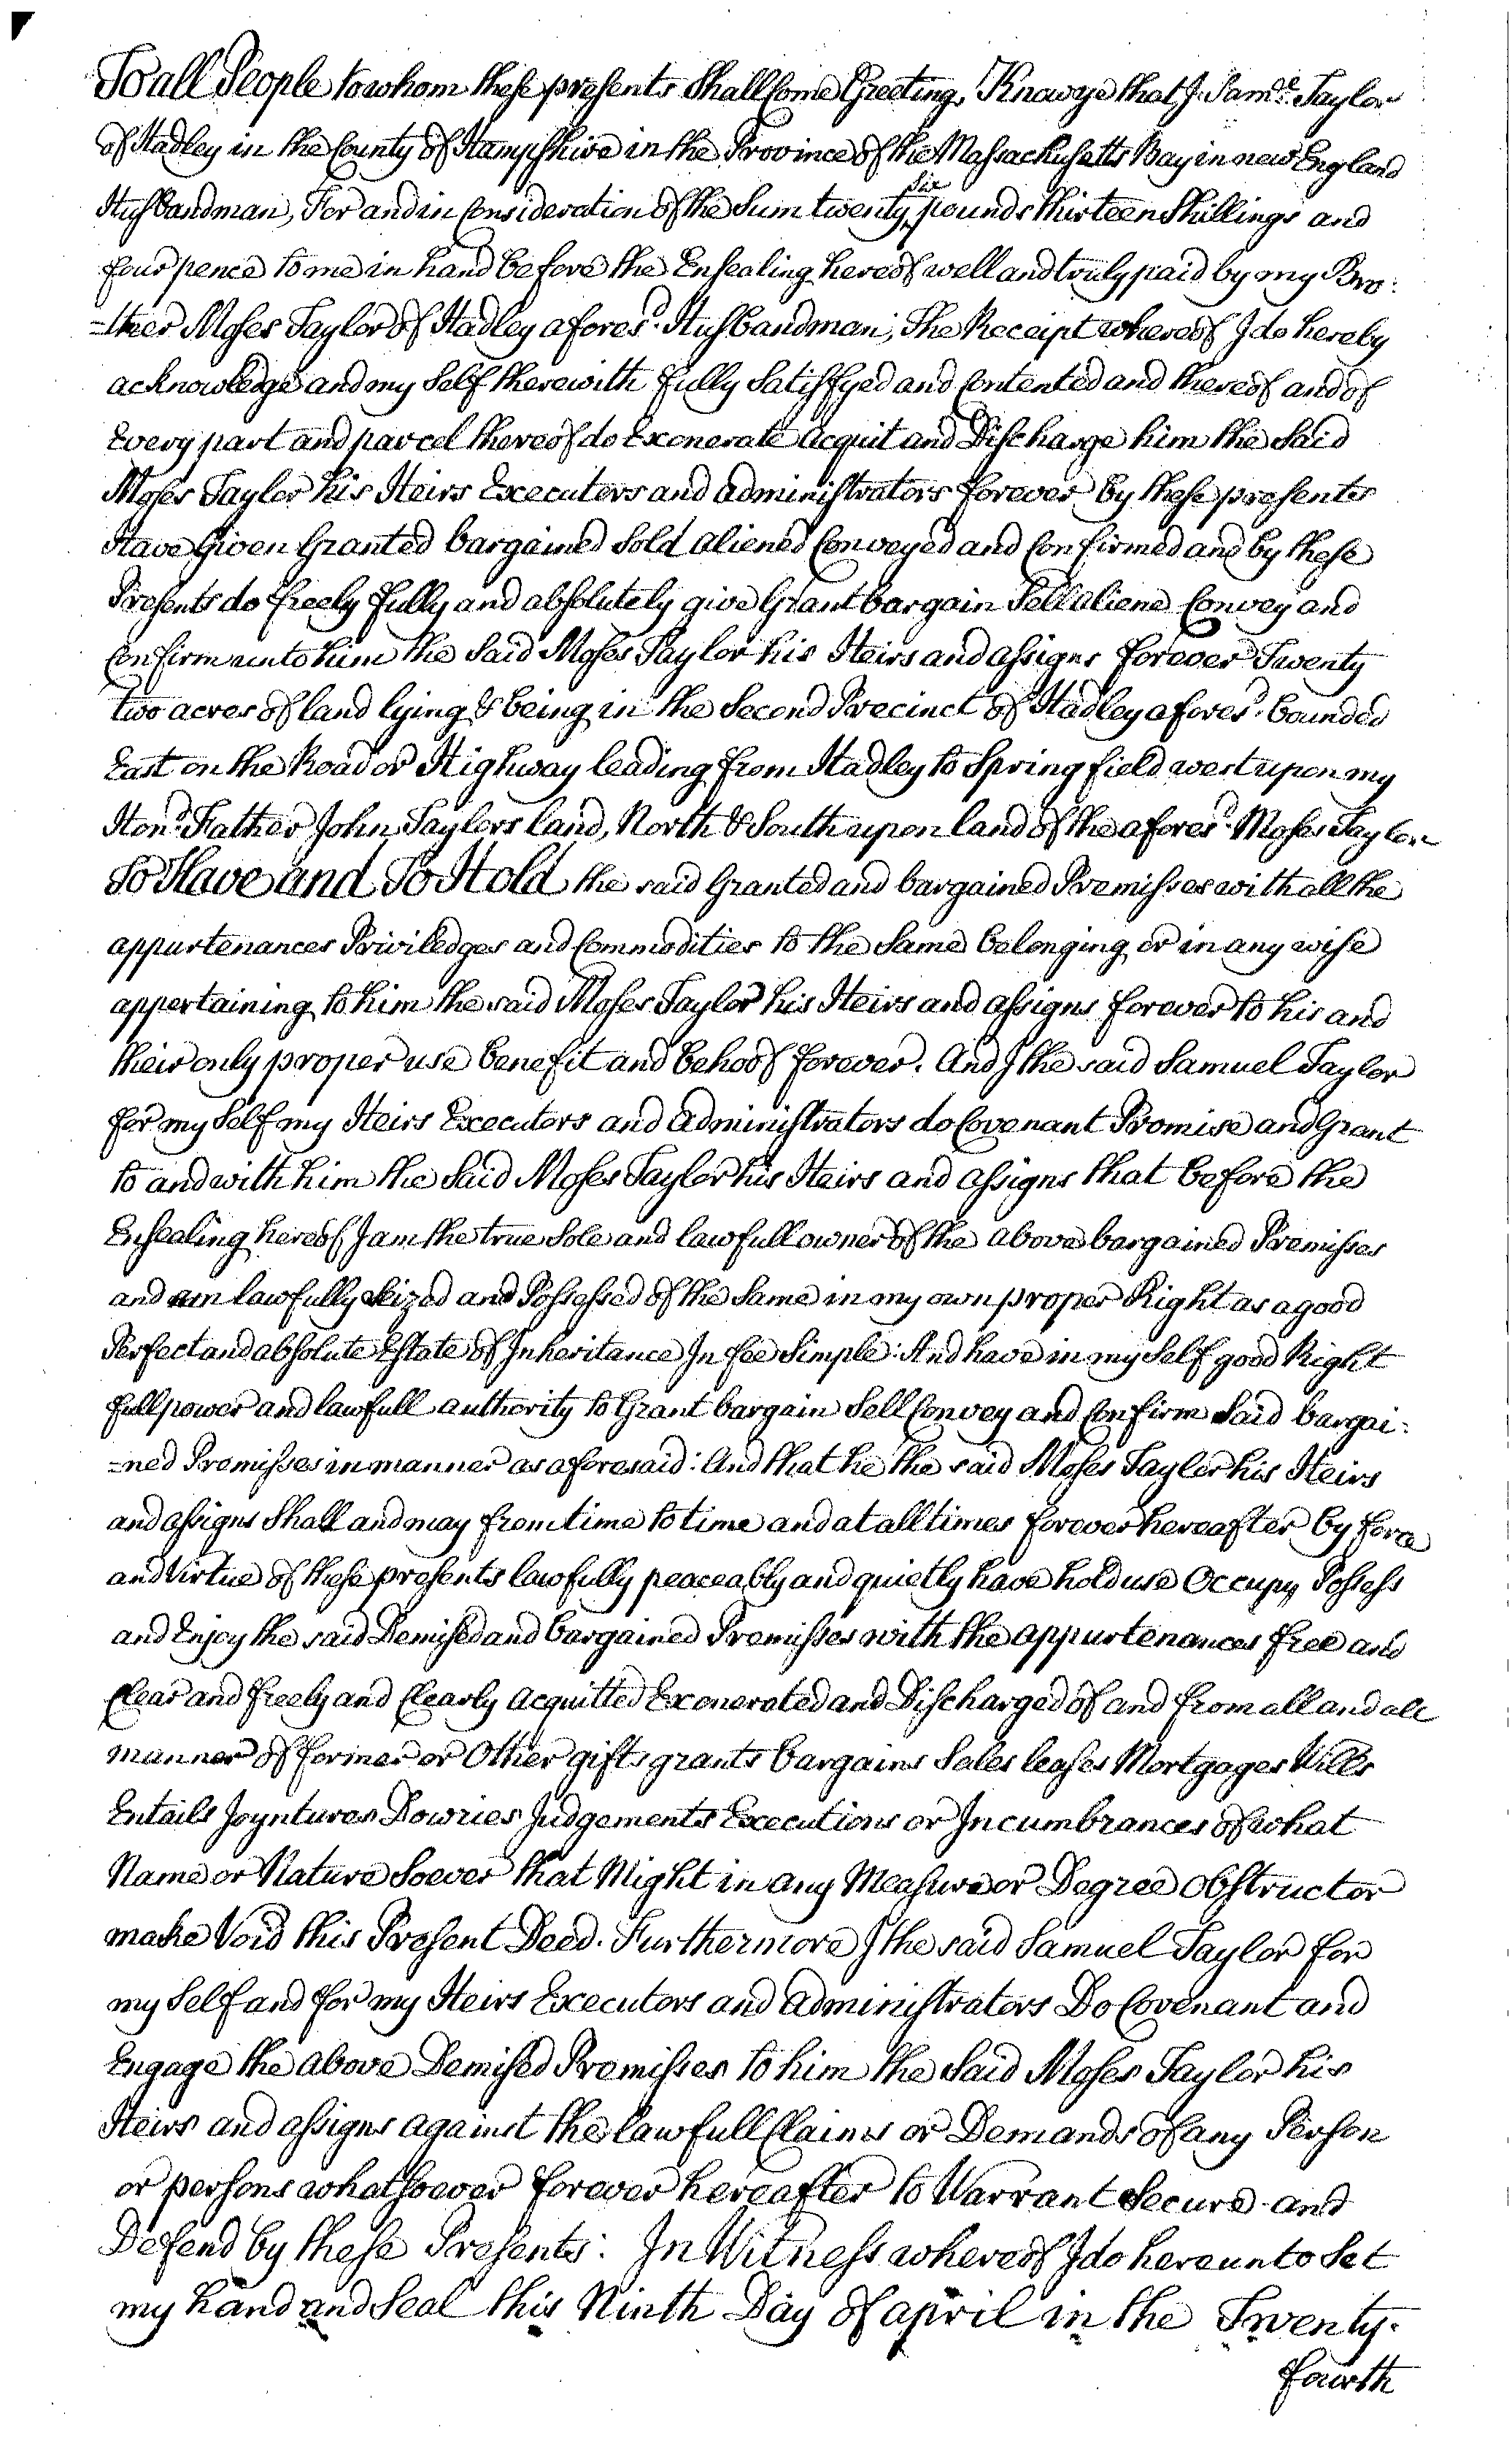 To all People to whom these presents Shall Come Greeting, Know ye that I Sam.ll Taylor
of Hadley in the County of Hampshire in the Province of the Massachusetts Bay in new England
Husbandman, For and in Consideration of the Sum twenty six pounds thirteen Shillings and
four pence to me in hand before the Ensealing hereof well and truly paid by my Bro:
=ther Moses Taylor of Hadley afores.d Husbandman, The Receipt whereof I do hereby
acknowledge and my Self therewith fully Satisfyed and Contented and thereof and of
Every part and parcel thereof do Exonerate acquit and Discharge him the Said
Moses Taylor his Heirs Executers and administrators forever by these presents
Have Given Granted bargained Sold aliened Conveyed and Confirmed and by these
Presents do freely fully and absolutely give Grant bargain Sell aliene Convey and
Confirm unto him the Said Moses Taylor his Heirs and assigns forever Twenty
two acres of land lying & being in the Second Precinct of Hadley afores.d bounded
East on the Road or Highway leading from Hadley to Springfield west upon my
Hon.d Father John Taylors land, North & South upon land of the afores.d Moses Taylor
To Have and To Hold the said Granted and bargained Premisses with all the
appurtenances Priviledges and Commodities to the Same belonging or in any wise
appertaining to him the said Moses Taylor his Heirs and assigns forever to his and
their only proper use benefit and behoof forever. And I the said Samuel Taylor
for my Self my Heirs Executors and administrators do Covenant Promise and Grant
to and with him the Said Moses Taylor his Heirs and assigns that before the
Ensealing hereof I am the true Sole and lawfull owner of the above bargained Premisses
and am lawfully Seized and Possessed of the Same in my own proper Right as a good
Perfect and absolute Estate of Inheritance In fee Simple: And have in my Self good Right
full power and lawfull authority to Grant bargain Sell Convey and Confirm Said bargai:
=ned Premisses in manner as aforesaid: And that he the said Moses Taylor his Heirs
and assigns Shall and may from time to time and at all times forever hereafter by force
and Virtue of these presents lawfully peaceably and quietly have hold use Occupy Possess
and Enjoy the said Demised and bargained Premisses with the appurtenances free and
Clear and freely and Clearly acquitted Exonerated and Discharged of and from all and all
manner of former or Other gifts grants bargains Sales leases Mortgages Wills
Entails Joyntures Dowries Judgements Executions or Incumbrances of what
Name or Nature Soever that Might in any Measure or Degree obstruct or
make Void this Present Deed. Furthermore I the said Samuel Taylor for
my Self and for my Heirs Executors and administrators Do Covenant and
Engage the above Demised Premisses to him the Said Moses Taylor his
Heirs and assigns against the lawfull Claims or Demands of any Person
or persons whatsoever forever hereafter to Warrant Secure and
Defend by these Presents: In Witness whereof I do hereunto Set
my hand and Seal this Ninth Day of april in the Twenty-
fourth